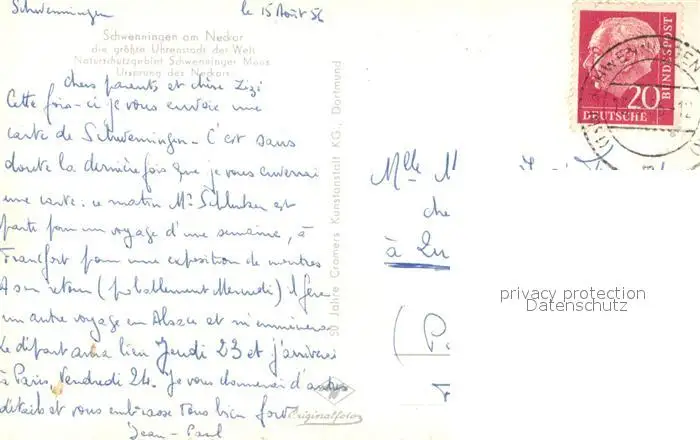 Schwenningen le 15 Août 56
Schwenningen am Neckar
die größte Uhrenstadt der Welt
Naturschutzgebiet Schwenninger Moos
Ursprung des Neckars
chers parents et chère Zizi
Cette fois-ci je vous envoie une
carte de Schwenningen - C'est sans
doute la dernière fois que je vous enverrai
une carte. ce matin Mr est
parti pour un voyage d'une semaine, à
Francfort pour une exposition de montres
A son retour (probablement Mercredi) il fera
un autre voyage en Alsace et m'emmènera
Le départ aura lieu Jeudi 23 et j'arriverai
à Paris, Vendredi 24. Je vous donnerai d'autres
détails et vous embrasse tous bien fort
Jean-Paul
50 Jahre Cramers Kunstanstalt KG., Dortmund
Originalfoto
20
DEUTSCHE
BUNDESPOST
Mlle
che
à
privacy protection
Datenschutz